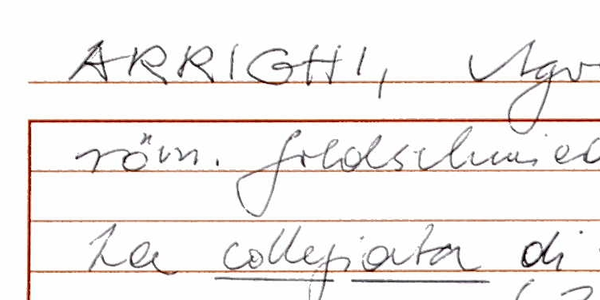 ARRIGHI, Ago
röm. Goldschmied
La collegiata di